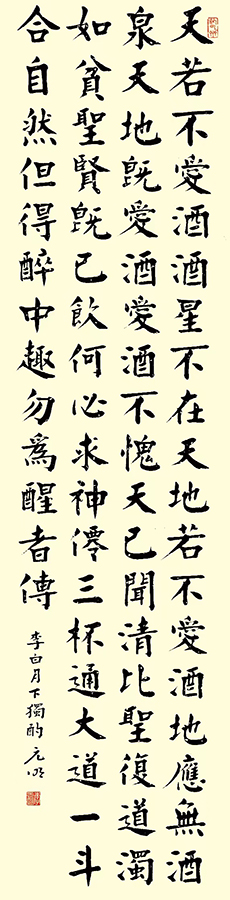 天若不愛酒酒星不在天地若不愛酒地應無酒
泉天地既愛酒愛酒不愧天已聞清比聖復道濁
如貧聖賢既已飲何必求神僊三杯通大道一斗
合自然但得醉中趣勿爲醒者傳
李白月下獨酌